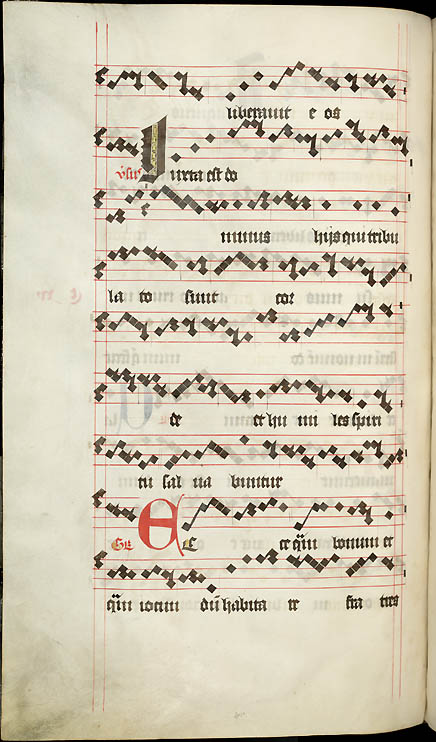 liberauit e os
v̄sus Iuxta est do
minus hijs qui tribu
la to sunt cor
de et hu mi les spiri
tu sal ua buntur
Gr̄ Ecce ce q̄m bonum et
q̄m iocun dū habita re fra tres